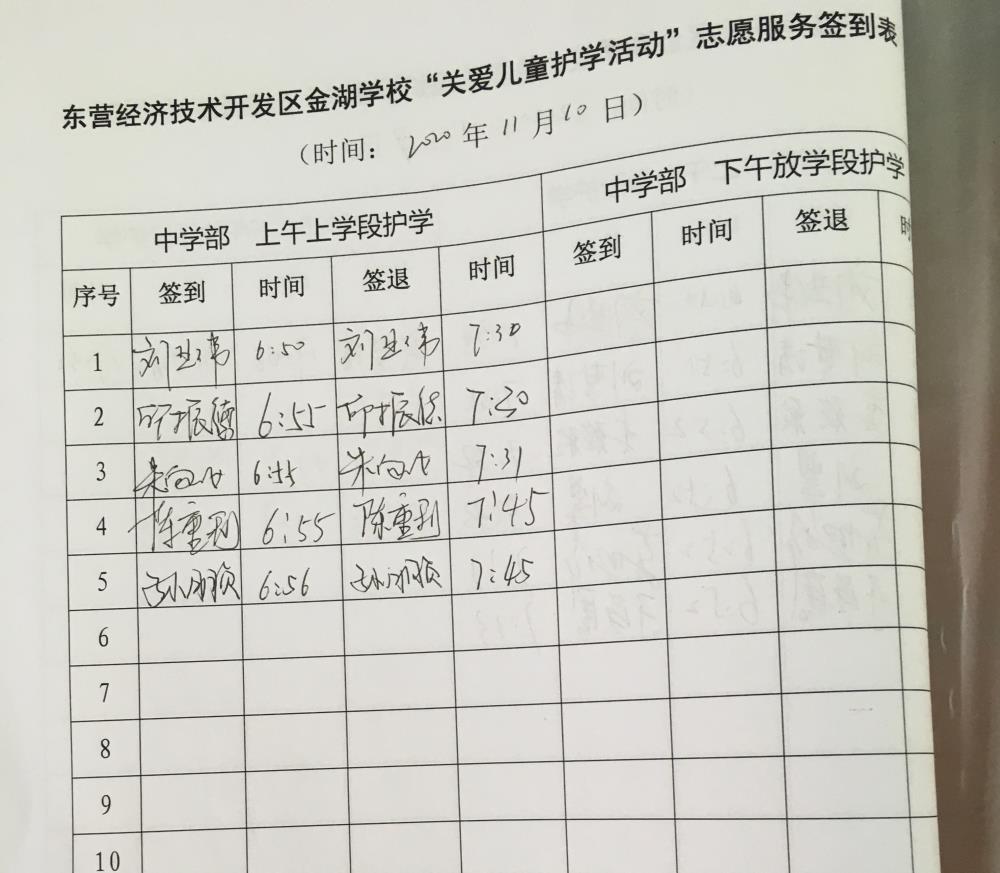 东营经济技术开发区金湖学校“关爱儿童护学活动”志愿服务签到表
（时间：2020年11月10日）
中学部 上午上学段护学 中学部 下午放学段护学
序号 签到 时间 签退 时间 签到 时间 签退 时
1 6:50 7:30
2 印振德 6:55 印振德 7:30
3 朱向 6:55 朱向 7:31
4 陈重利 6:55 陈重利 7:45
5 6:56 7:45
6
7
8
9
10